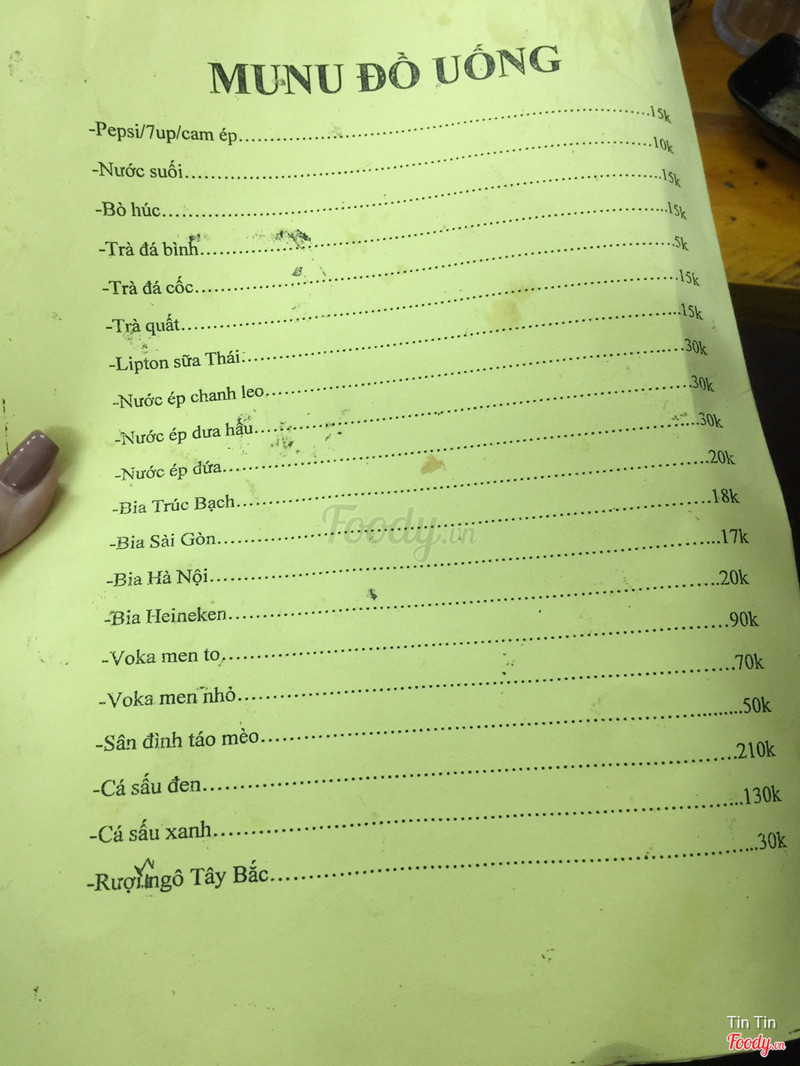 MUNU ĐỒ UỐNG
-Pepsi/7up/cam ép.....15k
-Nước suối.....10k
-Bò húc.....15k
-Trà đá bình.....15k
-Trà đá cốc.....5k
-Trà quất.....15k
-Lipton sữa Thái.....15k
-Nước ép chanh leo.....30k
-Nước ép dưa hấu.....30k
-Nước ép dứa.....30k
-Bia Trúc Bạch.....20k
-Bia Sài Gòn.....18k
-Bia Hà Nội.....17k
-Bia Heineken.....20k
-Voka men to.....90k
-Voka men nhỏ.....70k
-Sân đình táo mèo.....50k
-Cá sấu đen.....210k
-Cá sấu xanh.....130k
-Rượu ngô Tây Bắc.....30k
Foody.vn
Tin Tin
Foody.vn